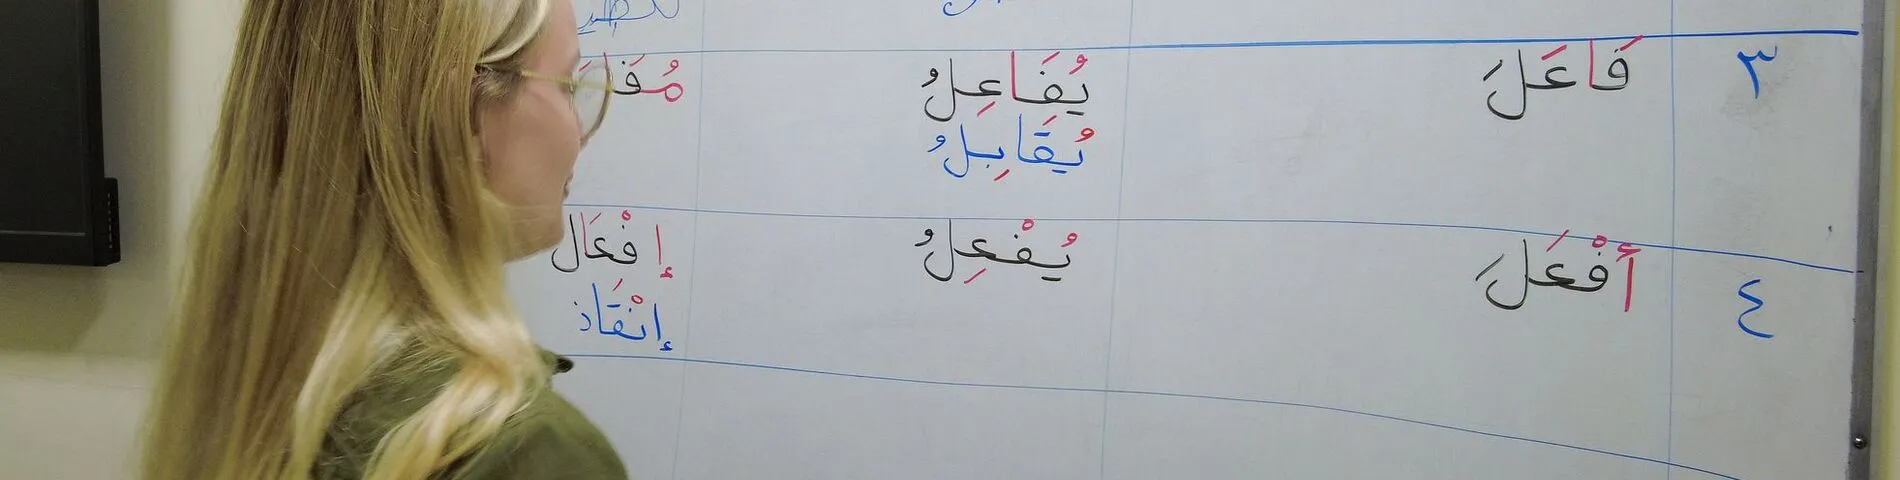 ٣ فَاعَلَ يُفَاعِلُ
يُقَابِلُ
٤ أَفْعَلَ يُفْعِلُ إِفْعَال
إِنْقَاذ